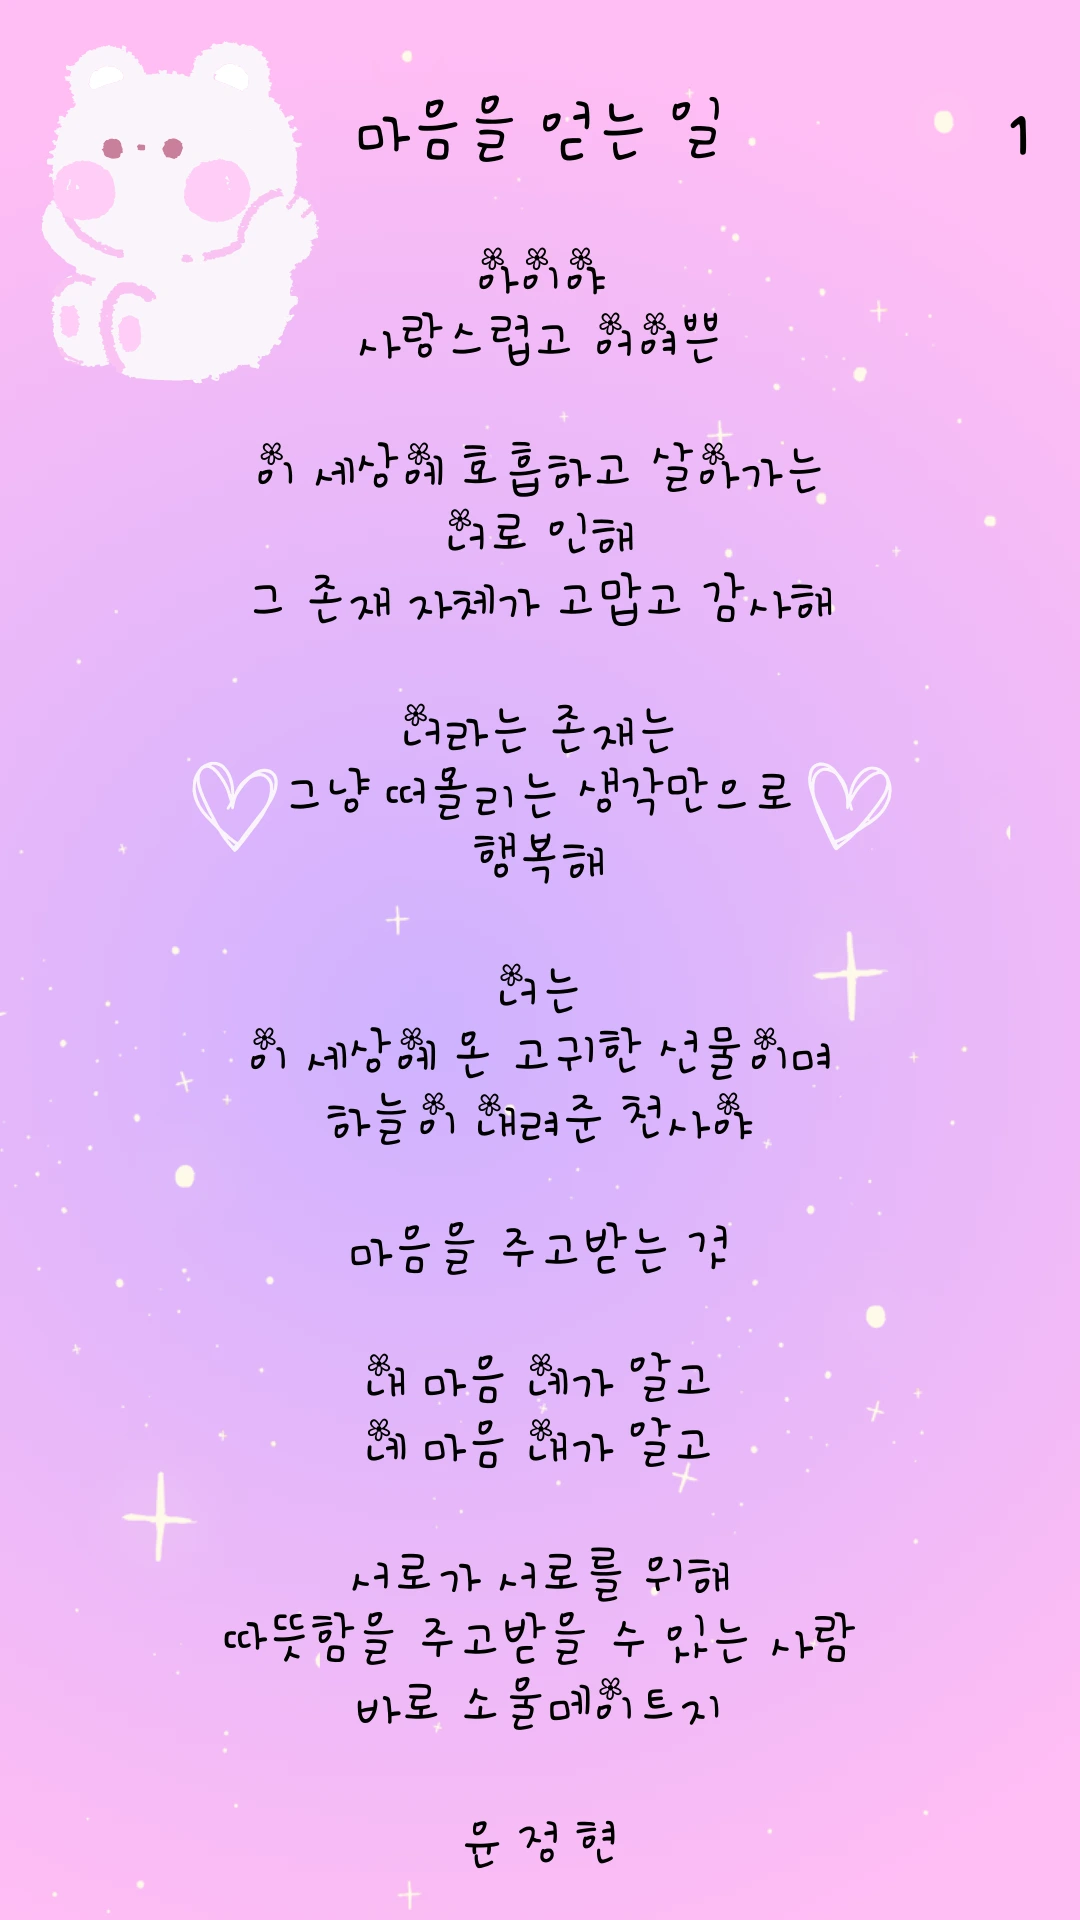 마음을 얻는 일
1
아이야
사랑스럽고 어여쁜
이 세상에 호흡하고 살아가는
너로 인해
그 존재 자체가 고맙고 감사해
너라는 존재는
그냥 떠올리는 생각만으로
행복해
너는
이 세상에 온 고귀한 선물이며
하늘이 내려준 천사야
마음을 주고받는 것
내 마음 네가 알고
네 마음 내가 알고
서로가 서로를 위해
따뜻함을 주고받을 수 있는 사람
바로 소울메이트지
윤정현